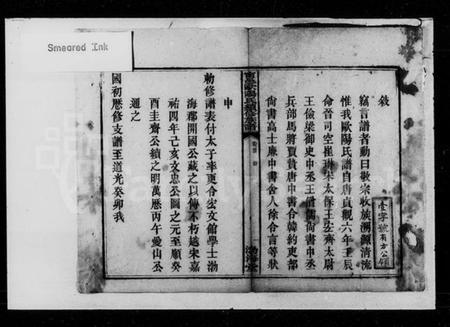 Smeared Ink
敘
竊言譜者動曰敬宗收族溯源清流
惟我歐陽氏譜自唐貞觀六年壬辰
命晉司空崔琳宋太保王宏齊太尉
王儉梁御史中丞王僧孺尚書中丞
兵部馬將賈贄唐中書令韓約吏部
尚書高士廉中書舍人徐令言等狀
壹字號有方公領
申
勑修譜表付太子率更令宏文館學士渤
海郡開國公藏之以傳不朽越宋嘉
祐四年己亥文忠公圖之元至順癸
酉圭齋公續之明萬曆丙午曼山公
通之
國初歷修支譜至道光癸卯我